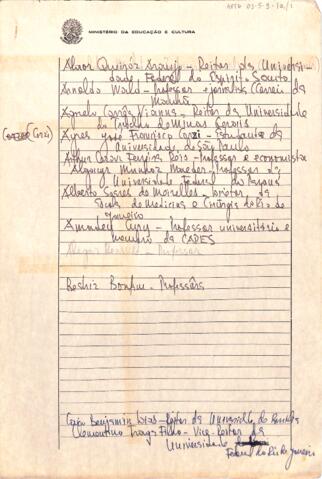 MINISTÉRIO DA EDUCAÇÃO E CULTURA
Alaor Queiroz Araujo - Reitor da Universi-
dade Federal do Espirito Santo
Arnoldo Wald - Professor e jornalista Correio da
Manhã
Corrêa Vianna - Reitor da Universidade
de Minas Gerais
Ayres José Francisco Corzi - Estudante da
Universidade de São Paulo
Arthur Cezar Ferreira Reis - Professor e economista
Algacyr Munhoz Maeder - Professor da
Universidade Federal do Paraná
Alberto Soares de Meirelles - Diretor da
Escola de Medicina e Cirurgia do Rio de
Janeiro
Amundsey Cury - Professor universitário e
membro da CAPES
- Professor
Beatriz Bonfim - Professôra
Benjamin - Reitor da Universidade de Brasília
Clementino Fraga Filho - Vice-Reitor da
Universidade
Federal do Rio de Janeiro